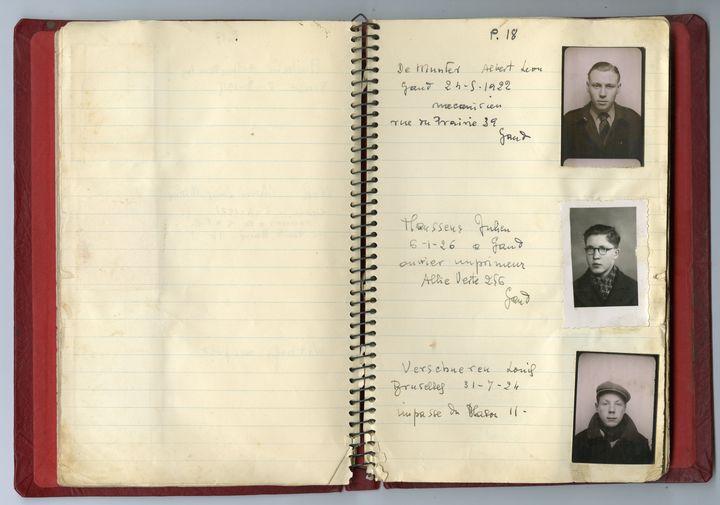 P. 18
De Winster Albert Leon
Gand 24-5-1922
mecanicien
rue du Prairie 39
Gand
Julien
6-1-26 a Gand
ouvrier imprimeur
Allée Verte 256
Gand
Verschueren Louis
Bruxelles 31-7-24
impasse du 11-